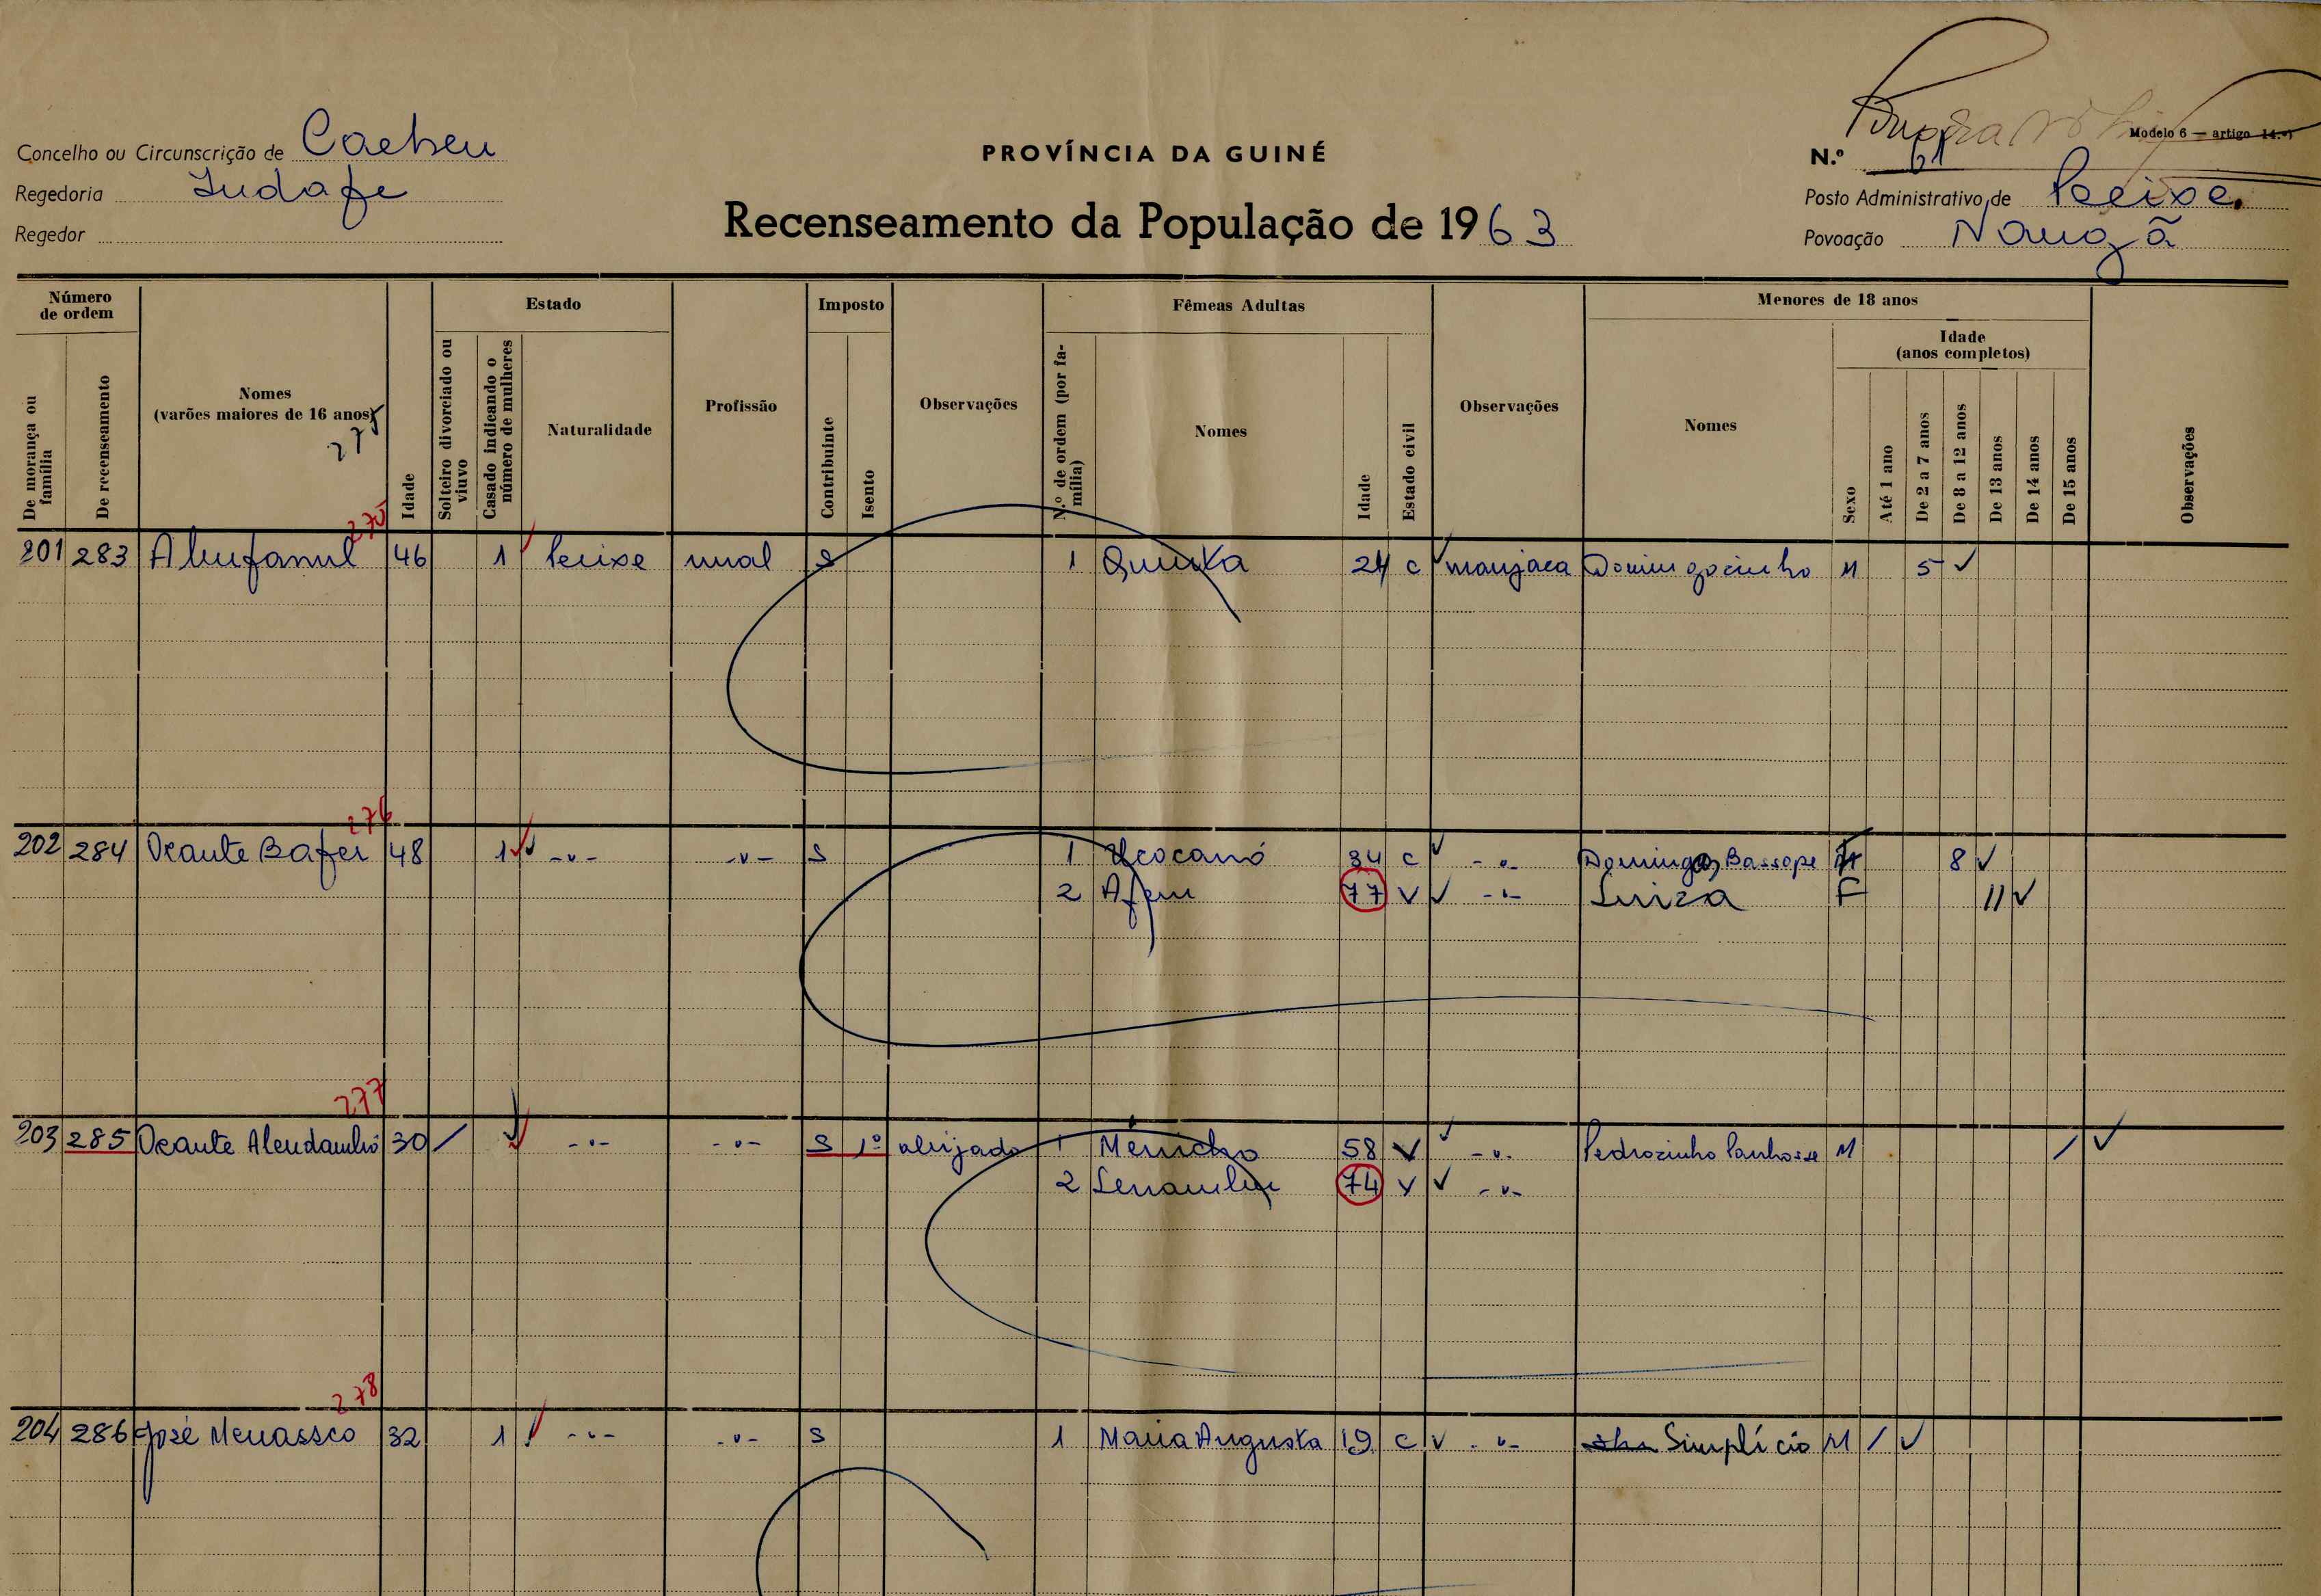 Modelo 6 — artigo 14.º)
Concelho ou Circunscrição de Cacheu
PROVÍNCIA DA GUINÉ
N.º 61
Regedoria
Recenseamento da População de 1963
Posto Administrativo de
Regedor
Povoação
Número de ordem
De morança ou família
De recenseamento
Nomes
(varões maiores de 16 anos)
275
Idade
Estado
Solteiro divorciado ou viuvo
Casado indicando o número de mulheres
Naturalidade
Profissão
Imposto
Contribuinte
Isento
Observações
Fêmeas Adultas
N.º de ordem (por família)
Nomes
Idade
Estado civil
Observações
Menores de 18 anos
Nomes
Sexo
Idade
(anos completos)
Até 1 ano
De 2 a 7 anos
De 8 a 12 anos
De 13 anos
De 14 anos
De 15 anos
Observações
275
201 283 46 1 rural S 1 24 c manjaca Domingocinho M 5
276
202 284 Ocante Bafer 48 1 -"- -"- S 1 34 c -"- Domingos Bassope 8
2 77 V -"- Luiza F 11
277
203 285 Ocante 30 / -"- -"- S 1º aleijado 1 58 V -"- Pedrozinho M /
2 74 V -"-
278
204 286 José Menassco 32 1 -"- -"- S 1 Maria Augusta 19 c -"- Simplício M /